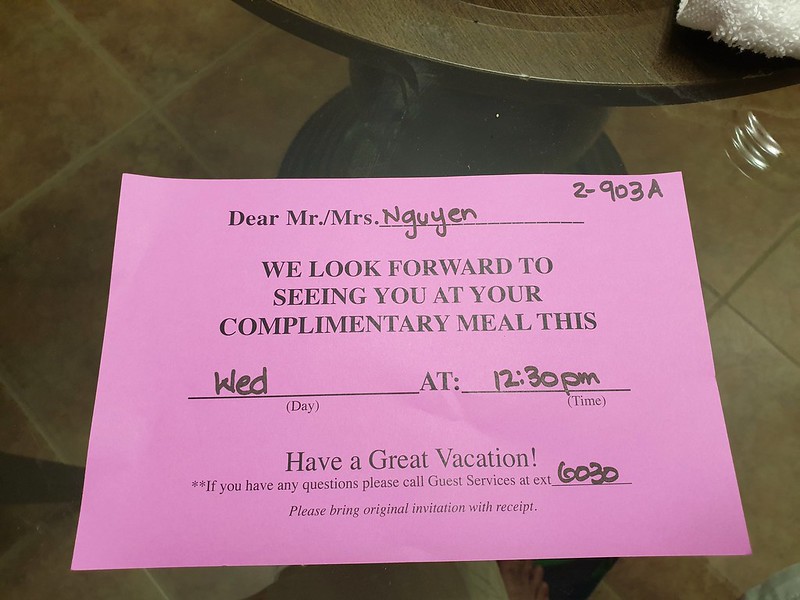 2-903A
Dear Mr./Mrs. Nguyen
WE LOOK FORWARD TO
SEEING YOU AT YOUR
COMPLIMENTARY MEAL THIS
Wed AT: 12:30pm
(Day) (Time)
Have a Great Vacation!
**If you have any questions please call Guest Services at ext 6030
Please bring original invitation with receipt.